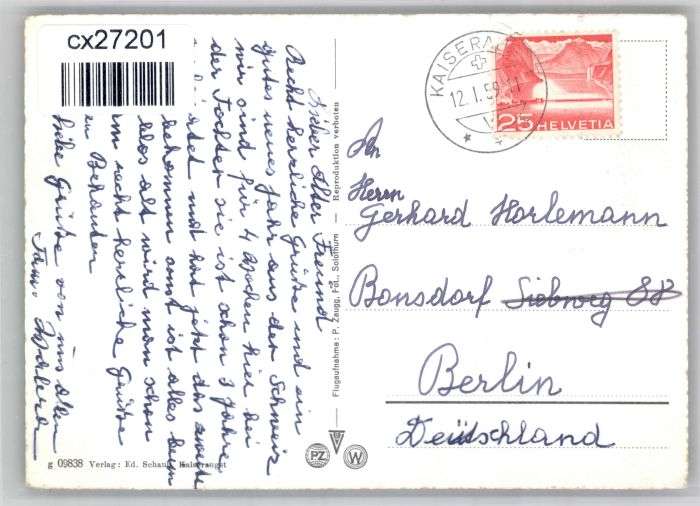 cx27201
KAISERA
12.I.59
25 HELVETIA
Lieber Alter Freund
Recht herzliche Grüße und ein
gutes neues Jahr aus der Schweiz
wir sind für 4 Wochen hier bei
der Tochter sie ist schon 3 Jahre
und hat jetzt das zweite
bekommen sonst ist alles beim
alt wird man schon
recht herzliche Grüße
Behanden
liebe Grüße von uns allen
Fam.
An
Herrn
Gerhard Horlemann
Bonsdorf Siebweg 88
Berlin
Deutschland
Flugaufnahme: P. Zaugg, Fol., Solothurn — Reproduktion verboten
PZ
W
g 09838 Verlag: Ed. Schaub, Kaiseraugst